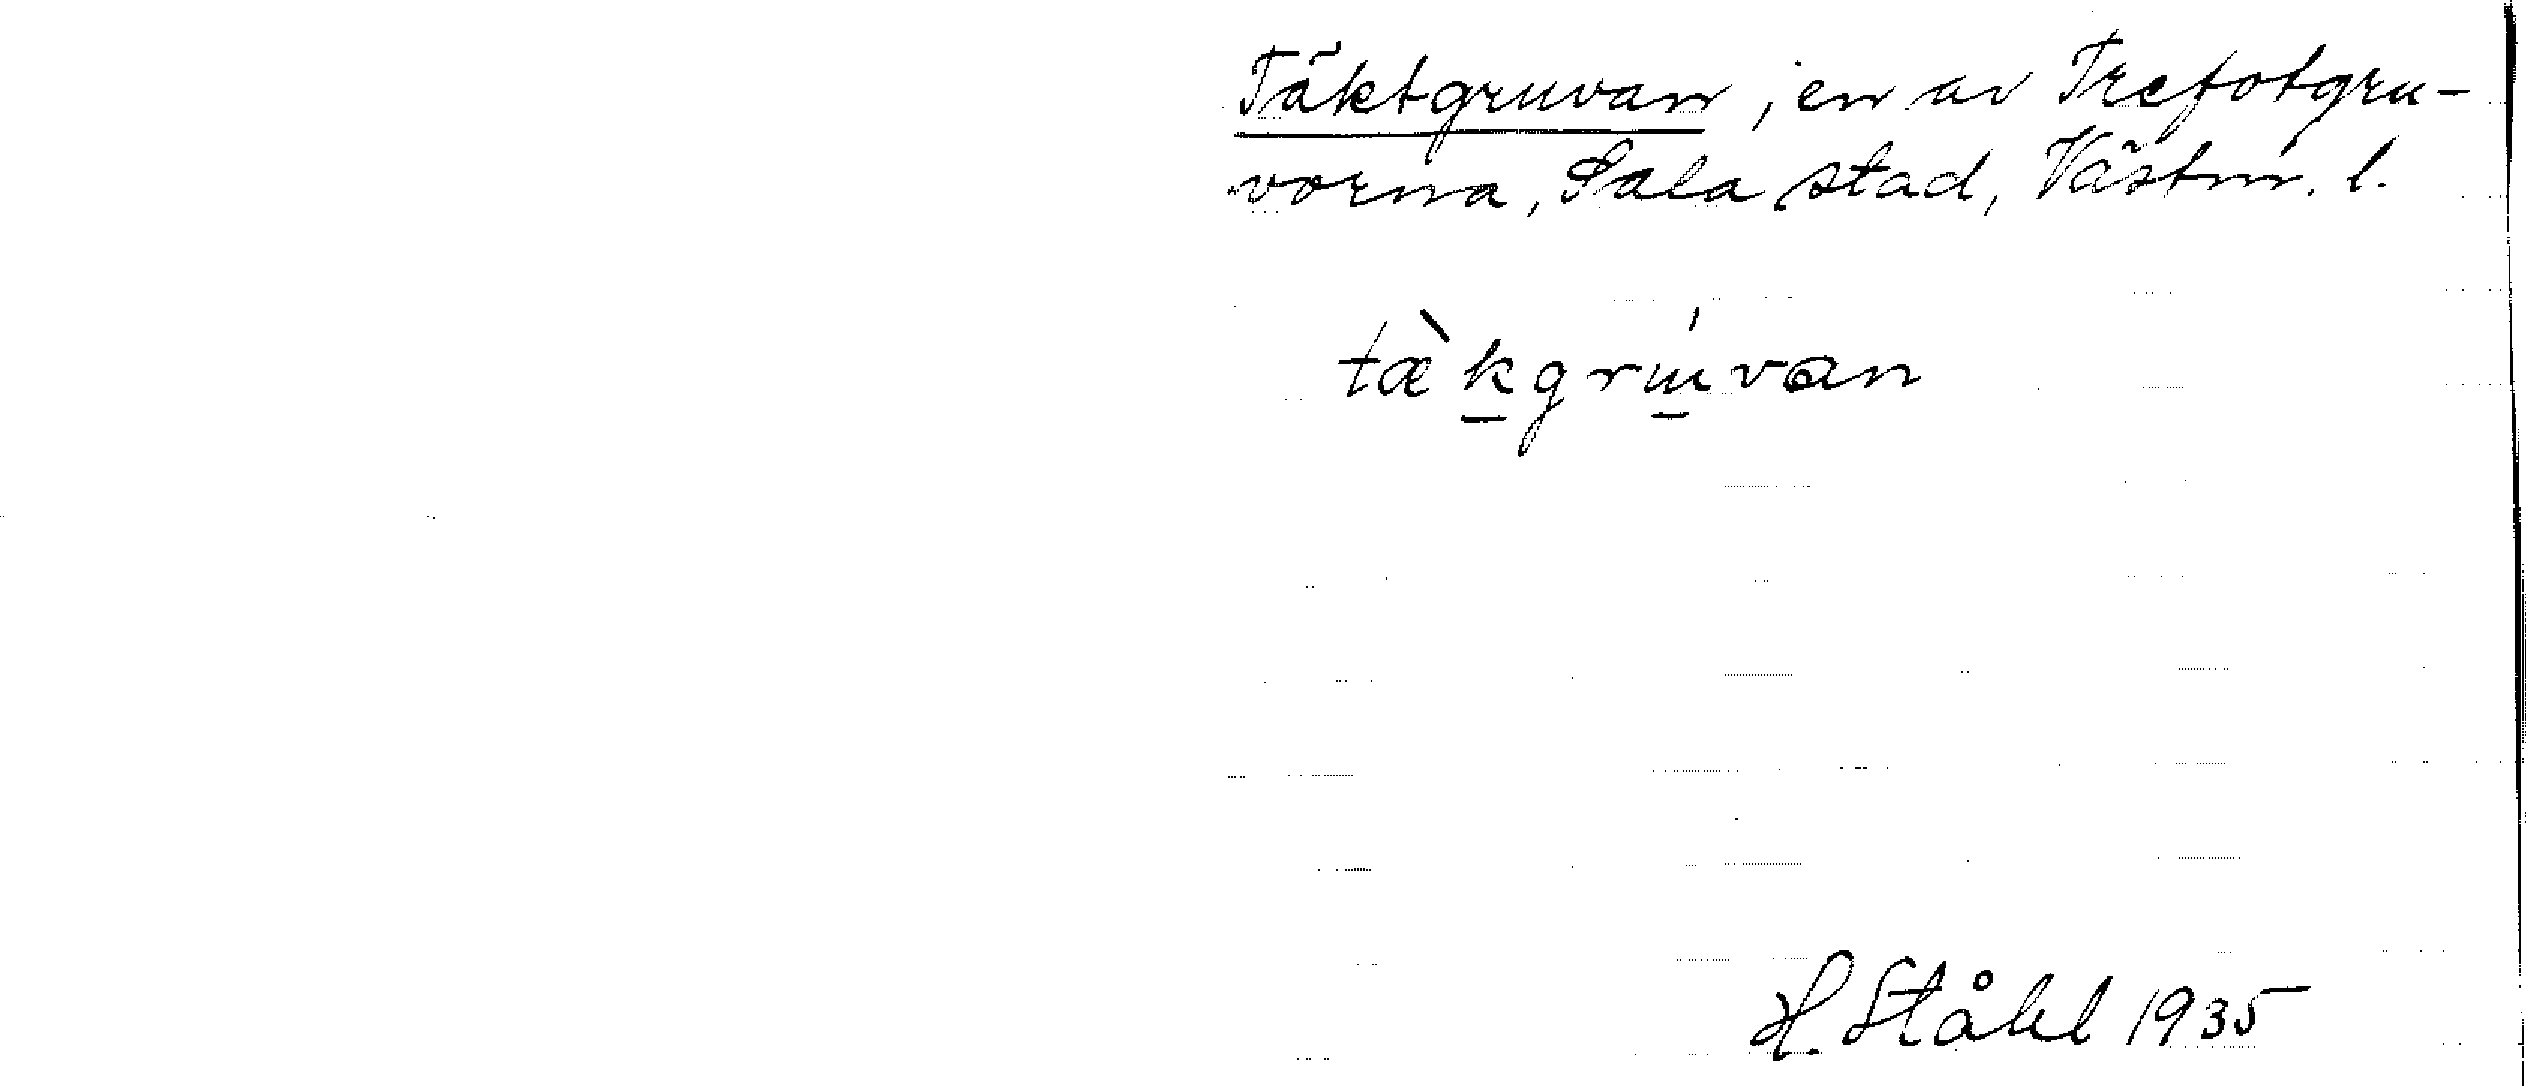 Täktgruvan, en av Trefotgru-
vorna, Sala stad, Västm. l.
tæ̀kgrúvan
H. Ståhl 1935